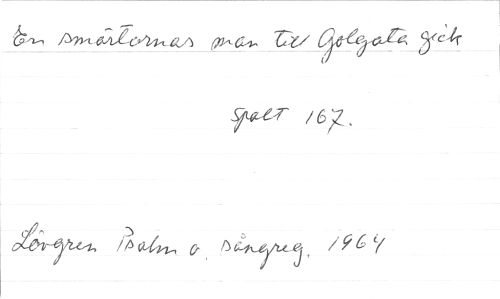 En smärtornas man till Golgata gick
spalt 167.
Lövgren Psalm o. sångreg. 1964